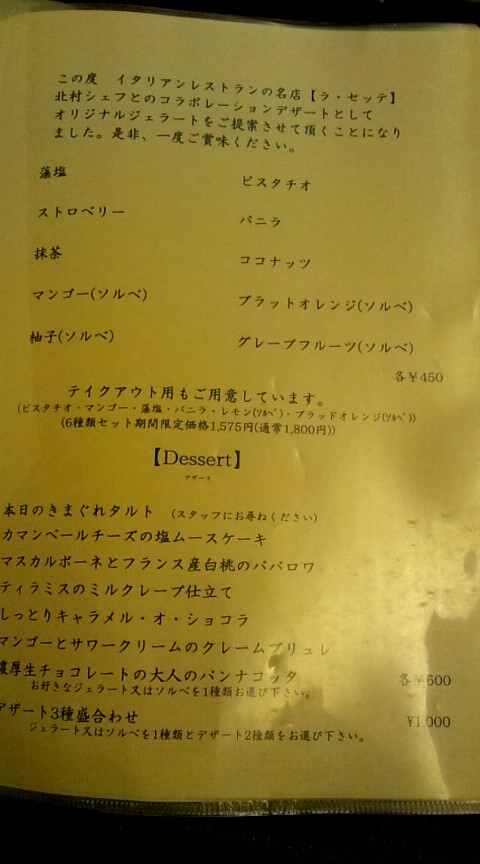 この度　イタリアンレストランの名店【ラ・セッテ】
北村シェフとのコラボレーションデザートとして
オリジナルジェラートをご提案させて頂くことになり
ました。是非、一度ご賞味ください。
藻塩
ピスタチオ
ストロベリー
バニラ
抹茶
ココナッツ
マンゴー(ソルベ)
ブラットオレンジ(ソルベ)
柚子(ソルベ)
グレープフルーツ(ソルベ)
各￥450
テイクアウト用もご用意しています。
(ピスタチオ・マンゴー・藻塩・バニラ・レモン(ｿﾙﾍﾞ)・ブラッドオレンジ(ｿﾙﾍﾞ))
(6種類セット期間限定価格1,575円(通常1,800円))
【Dessert】
デザート
本日のきまぐれタルト　(スタッフにお尋ねください)
カマンベールチーズの塩ムースケーキ
マスカルポーネとフランス産白桃のババロワ
ティラミスのミルクレープ仕立て
しっとりキャラメル・オ・ショコラ
マンゴーとサワークリームのクレームブリュレ
濃厚生チョコレートの大人のパンナコッタ 各￥600
お好きなジェラート又はソルベを1種類お選び下さい。
デザート3種盛合わせ ￥1,000
ジェラート又はソルベを1種類とデザート2種類をお選び下さい。